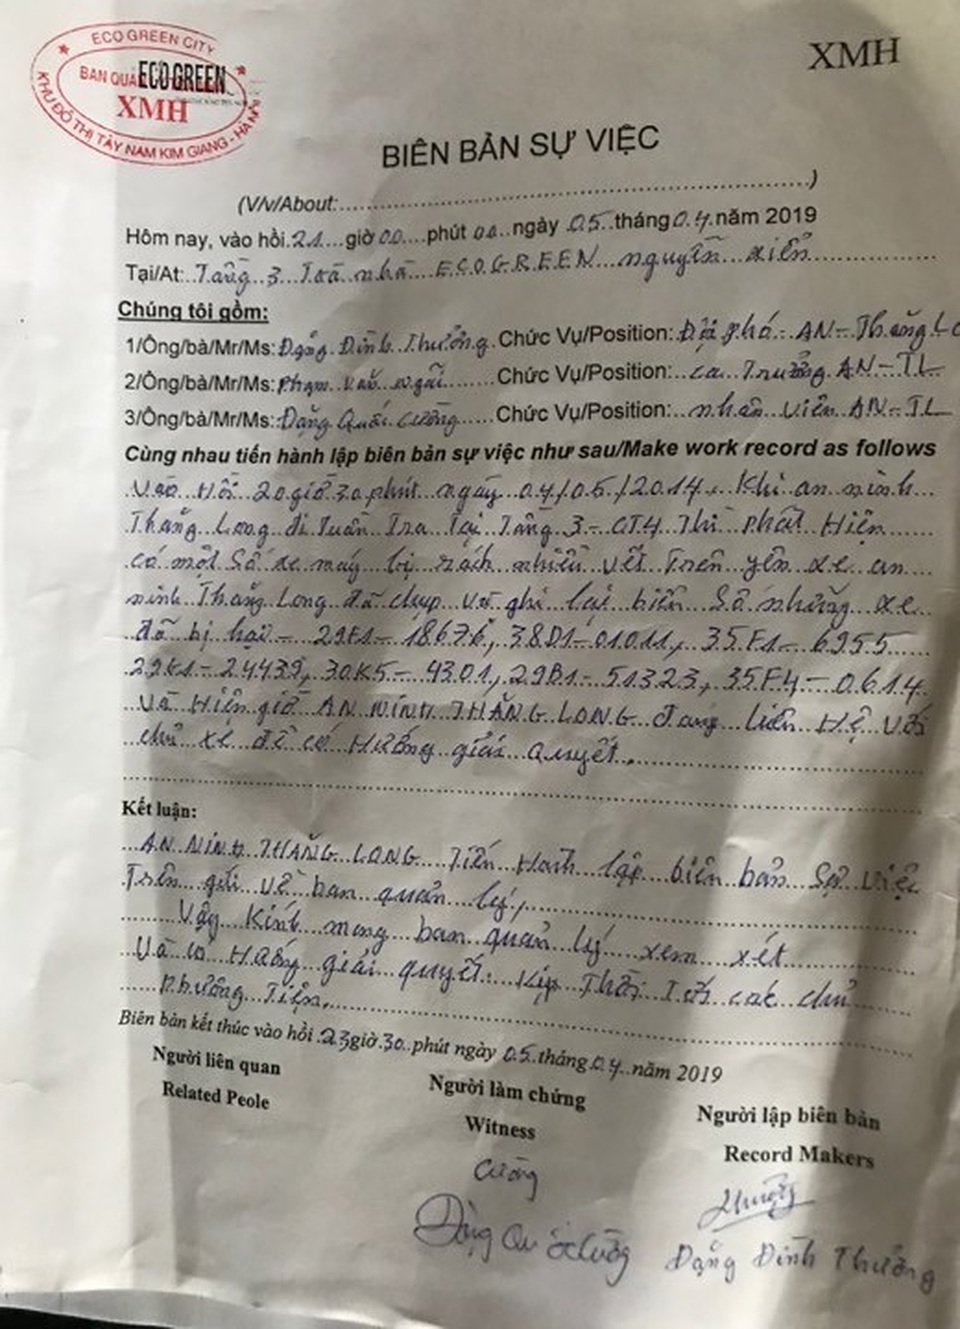 ECO GREEN CITY
BAN QUẢ
ECOGREEN
XMH
KHU ĐÔ THỊ TÂY NAM KIM GIANG - HÀ NỘI
XMH
BIÊN BẢN SỰ VIỆC
(V/v/About:..........)
Hôm nay, vào hồi 21 giờ 00 phút 00 ngày 05 tháng 04 năm 2019
Tại/At: Tầng 3 Toà nhà ECOGREEN nguyễn xiển
Chúng tôi gồm:
1/Ông/bà/Mr/Ms: Đặng Đình Thưởng Chức Vụ/Position: Đội phó AN-Thăng Lo
2/Ông/bà/Mr/Ms: Phạm Văn Chức Vụ/Position: ca Trưởng AN-TL
3/Ông/bà/Mr/Ms: Đặng Quốc Cường Chức Vụ/Position: nhân viên AN-TL
Cùng nhau tiến hành lập biên bản sự việc như sau/Make work record as follows
Vào Hồi 20giờ30phút ngày 04/05/2014, Khi an ninh
Thăng Long đi Tuần Tra Tại Tầng 3-CT4 Thì phát Hiện
có một Số xe máy bị rách nhiều vết Trên yên xe an
ninh Thăng Long đã chụp và ghi lại biển Số những xe
đã bị hại - 29F1-18676, 38D1-01011, 35F1-6955
29K1-24439, 30K5-4301, 29B1-51323, 35F4-0614
Và Hiện giờ AN NINH THĂNG LONG đang liên Hệ Với
chủ xe để có Hướng giải quyết.
Kết luận:
AN NINH THĂNG LONG Tiến Hanh lập biên bản Sự việc
Trên gửi về ban quản lý,
Vậy Kính mong ban quản lý xem xét
Và có Hướng giải quyết Kịp Thời Tới các chủ
Phương Tiện.
Biên bản kết thúc vào hồi 23giờ 30 phút ngày 05 tháng 04 năm 2019
Người liên quan
Related Peole
Người làm chứng
Witness
Cường
Đặng Quốc Cường
Người lập biên bản
Record Makers
Thưởng
Đặng Đình Thưởng